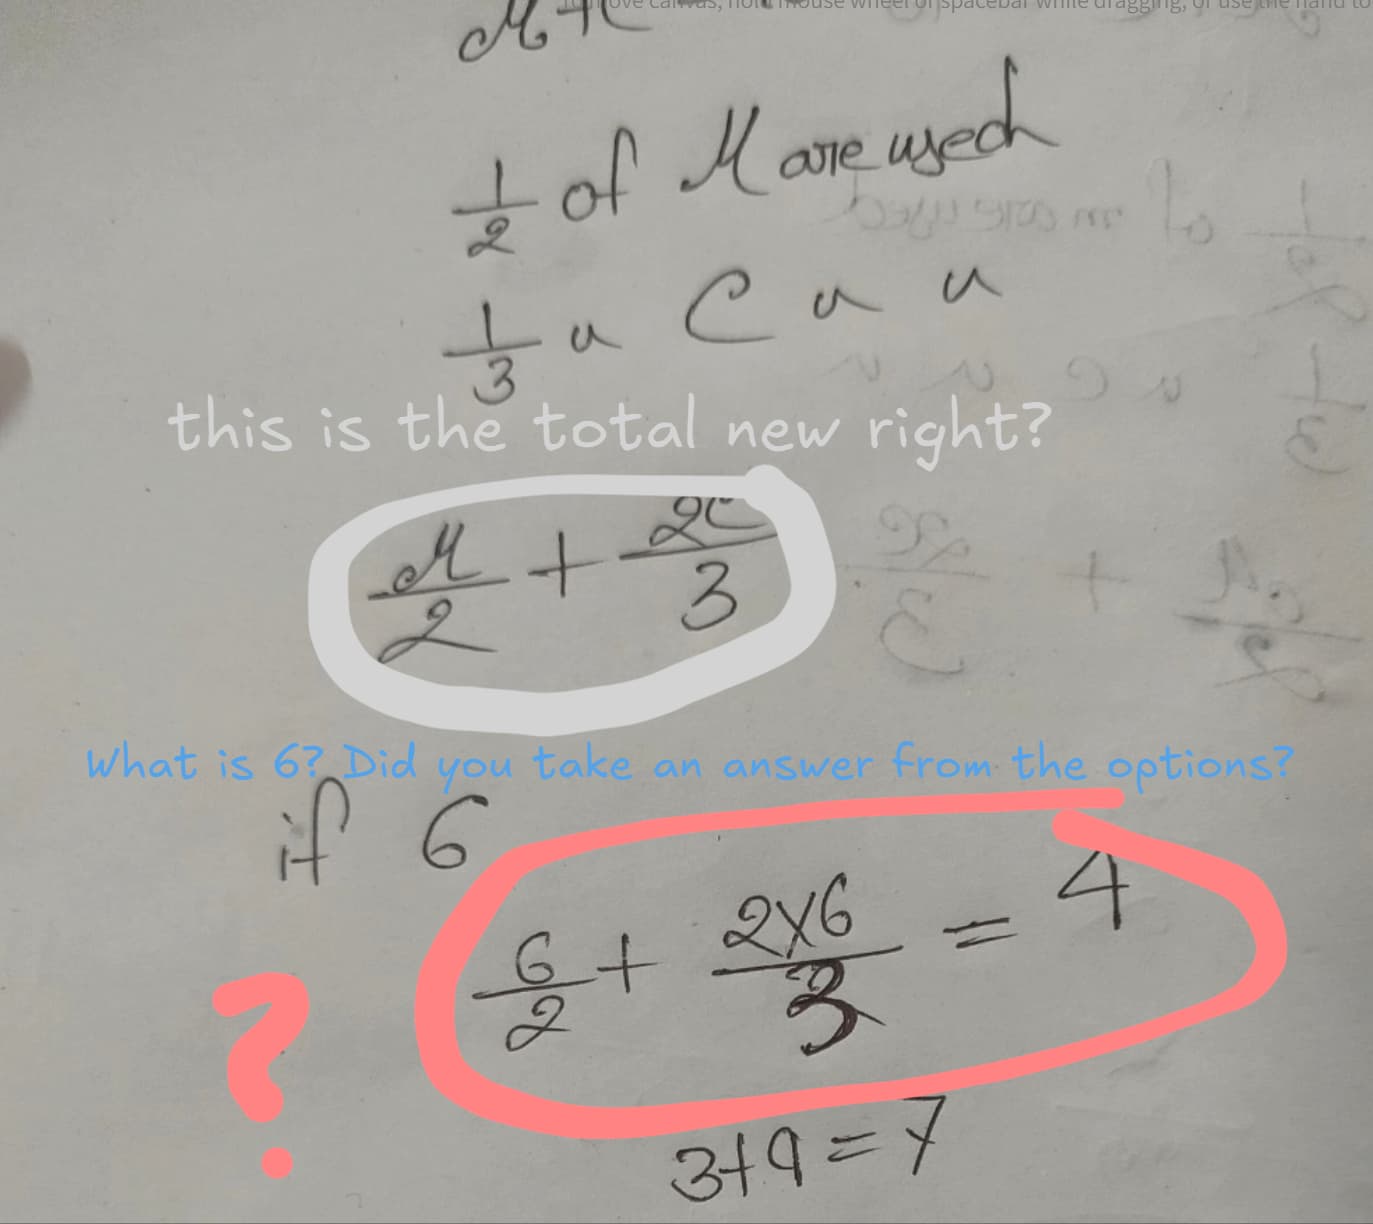 M + C
move canvas, hold mouse wheel or spacebar while dragging, or use the hand to
1/2 of M are used
1/3 " C " "
this is the total new right?
M/2 + 2C/3
What is 6? Did you take an answer from the options?
if 6
6/2 + 2x6/3 = 4
?
3+9=7